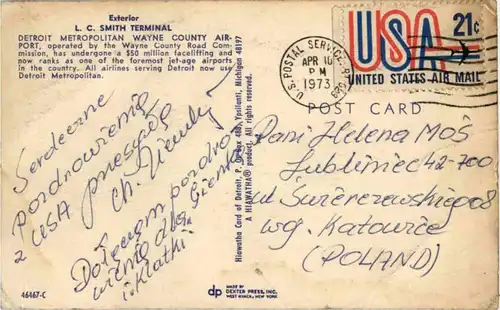 Exterior
L. C. SMITH TERMINAL
DETROIT METROPOLITAN WAYNE COUNTY AIR-
PORT, operated by the Wayne County Road Com-
mission, has undergone a $50 million facelifting and
now ranks as one of the foremost jet-age airports
in the country. All airlines serving Detroit now use
Detroit Metropolitan.
Serdeczne
Pozdrowienia
z USA przesyła
Ch.
Dołączam pozdro
wienia dla Gienka
i Klatki
46467-C
Hiawatha Card of Detroit, P. O. Box 488, Ypsilanti, Michigan 48197
A HIAWATHA® product. All rights reserved.
dp
MADE BY
DEXTER PRESS, INC.
WEST NYACK, NEW YORK
U.S. POSTAL SERVICE
APR 10
PM
1973
USA 21c
UNITED STATES AIR MAIL
POST CARD
Pani Helena Moś
Lubliniec 42-700
ul Świerczewskiego 8
wg. Katowice
(POLAND)